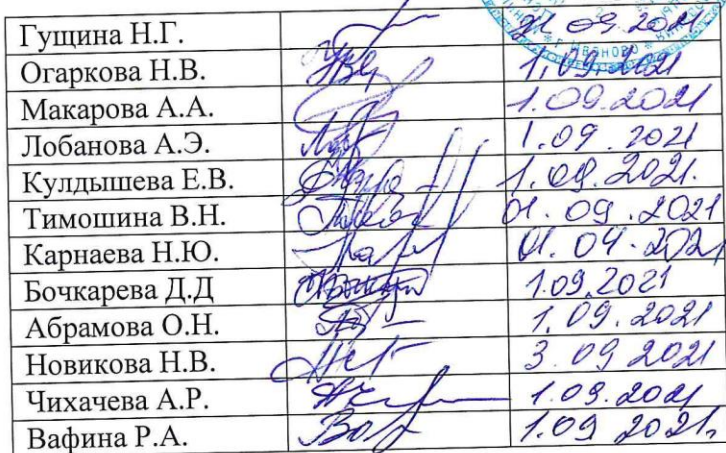 Гущина Н.Г. 01.09.2021
Огаркова Н.В. 1.09.2021
Макарова А.А. 1.09.2021
Лобанова А.Э. 1.09.2021
Кулдышева Е.В. 1.09.2021.
Тимошина В.Н. 01.09.2021
Карнаева Н.Ю. 01.09.2021
Бочкарева Д.Д 1.09.2021
Абрамова О.Н. 1.09.2021
Новикова Н.В. 3.09 2021
Чихачева А.Р. 1.09.2021
Вафина Р.А. 1.09 2021.